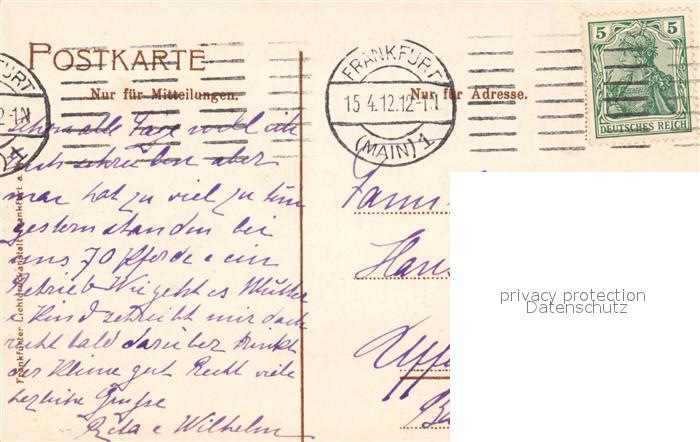 POSTKARTE
Nur für Mitteilungen.
Nur für Adresse.
FRANKFURT
15.4.12.12-1N
(MAIN) 1
5 5
DEUTSCHES REICH
schon alle Tage wollt ich
euch schreiben aber
man hat zu viel zu tun
gestern standen bei
uns 70 Pferde e ein
Betrieb Wie geht es Mutter
e Kind schreibt mir doch
recht bald darüber trinkt
der Kleine gut Recht viele
herzliche Grüße
Rosa e Wilhelm
Frankfurter Lichtdruckanstalt Frankfurt a.
Fam
Hans
Uffe
privacy protection
Datenschutz